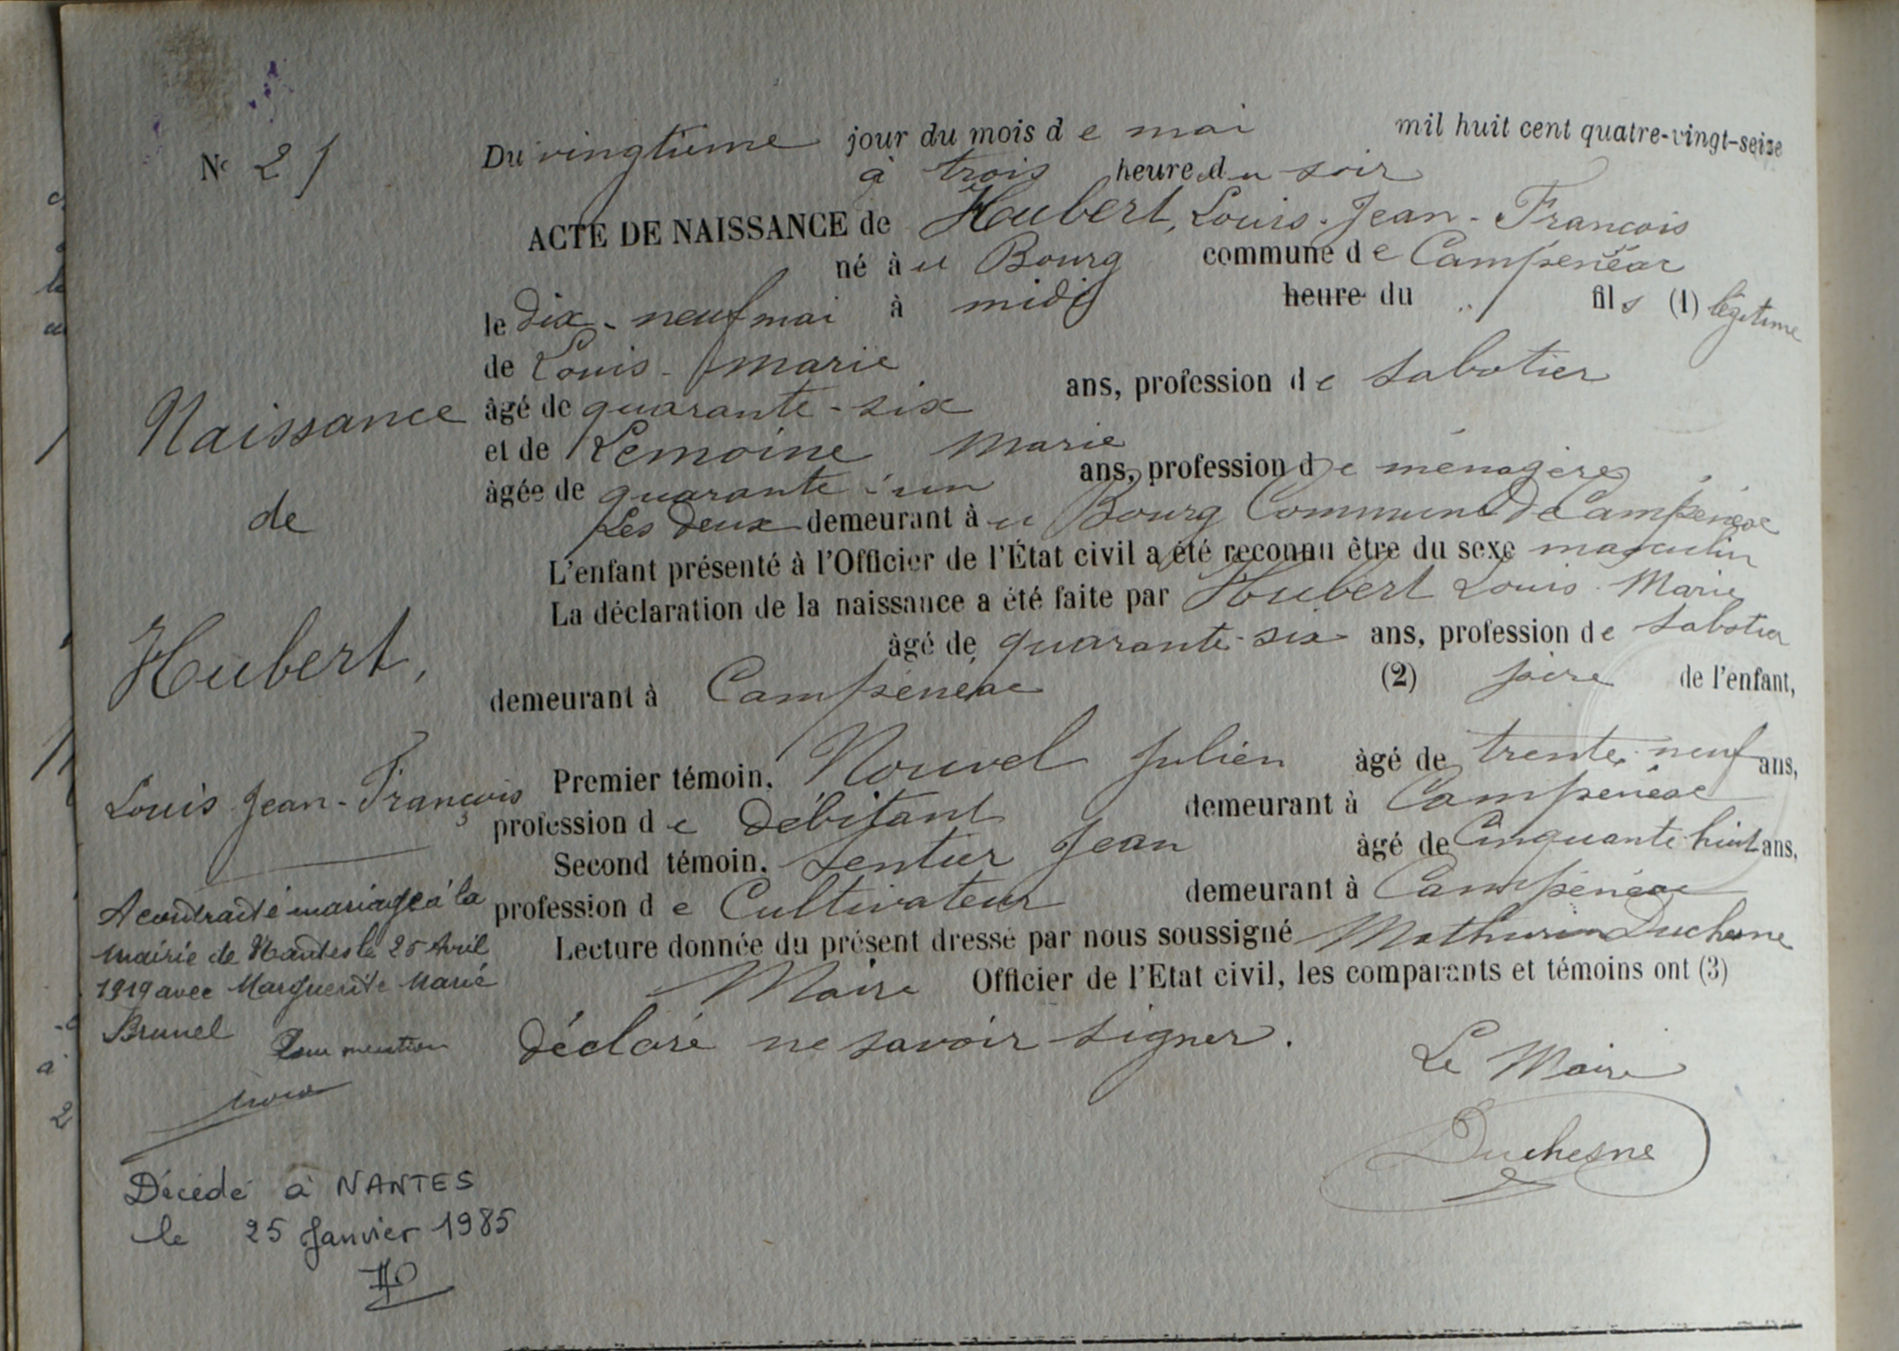 N° 21
Du vingtième jour du mois de mai mil huit cent quatre-vingt-seize
à trois heure du soir
ACTE DE NAISSANCE de Houbert, Louis-Jean-François
né à u Bourg commune de Campénéac
le dix-neuf mai à midi heure du fils (1) légitime
de Louis-Marie
âgé de quarante-six ans, profession de sabotier
et de Lemoine Marie
âgée de quarante-un ans, profession de ménagère
Les deux demeurant à u Bourg Commune de Campénéac
L'enfant présenté à l'Officier de l'État civil a été reconnu être du sexe masculin
La déclaration de la naissance a été faite par Houbert Louis-Marie
âgé de quarante-six ans, profession de sabotier
demeurant à Campénéac (2) père de l'enfant,
Premier témoin, Nouvel Julien âgé de trente-neuf ans,
profession de Débitant demeurant à Campénéac
Second témoin, Sentier Jean âgé de Cinquante-huit ans,
profession de Cultivateur demeurant à Campénéac
Lecture donnée du présent dressé par nous soussigné Mathurin Duchesne
Maire Officier de l'Etat civil, les comparants et témoins ont (3)
déclaré ne savoir signer.
Le Maire
Duchesne
Naissance
de
Houbert,
Louis Jean-François
A contracté mariage à la
mairie de Nantes le 25 Avril
1919 avec Marguerite Marie
Brunel Pour mention
Décédé à NANTES
le 25 Janvier 1985